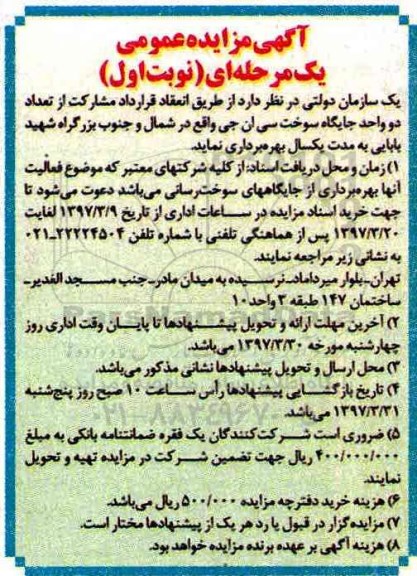 آگهی مزایده عمومی
یک مرحله‌ای (نوبت اول)
یک سازمان دولتی در نظر دارد از طریق انعقاد قرارداد مشارکت از تعداد
دو واحد جایگاه سوخت سی ان جی واقع در شمال و جنوب بزرگراه شهید
بابایی به مدت یکسال بهره‌برداری نماید.
۱) زمان و محل دریافت اسناد: از کلیه شرکتهای معتبر که موضوع فعالیت
آنها بهره‌برداری از جایگاههای سوخت‌رسانی می‌باشد دعوت می‌شود تا
جهت خرید اسناد مزایده در ساعات اداری از تاریخ ۱۳۹۷/۳/۹ لغایت
۱۳۹۷/۳/۲۰ پس از هماهنگی تلفنی با شماره تلفن ۲۲۲۲۴۵۰۴-۰۲۱
به نشانی زیر مراجعه نمایند.
تهران- بلوار میرداماد- نرسیده به میدان مادر- جنب مسجد الغدیر-
ساختمان ۱۴۷ طبقه ۳ واحد ۱۰
۲) آخرین مهلت ارائه و تحویل پیشنهادها تا پایان وقت اداری روز
چهارشنبه مورخه ۱۳۹۷/۳/۳۰ می‌باشد.
۳) محل ارسال و تحویل پیشنهادها نشانی مذکور می‌باشد.
۴) تاریخ بازگشایی پیشنهادها رأس ساعت ۱۰ صبح روز پنج‌شنبه
۱۳۹۷/۳/۳۱ می‌باشد.
۵) ضروری است شرکت‌کنندگان یک فقره ضمانتنامه بانکی به مبلغ
۴۰۰/۰۰۰/۰۰۰ ریال جهت تضمین شرکت در مزایده تهیه و تحویل
نمایند.
۶) هزینه خرید دفترچه مزایده ۵۰۰/۰۰۰ ریال می‌باشد.
۷) مزایده‌گزار در قبول یا رد هر یک از پیشنهادها مختار است.
۸) هزینه آگهی بر عهده برنده مزایده خواهد بود.
ParsNamadData
۰۲۱-۸۸۳۴۹۶۷۰